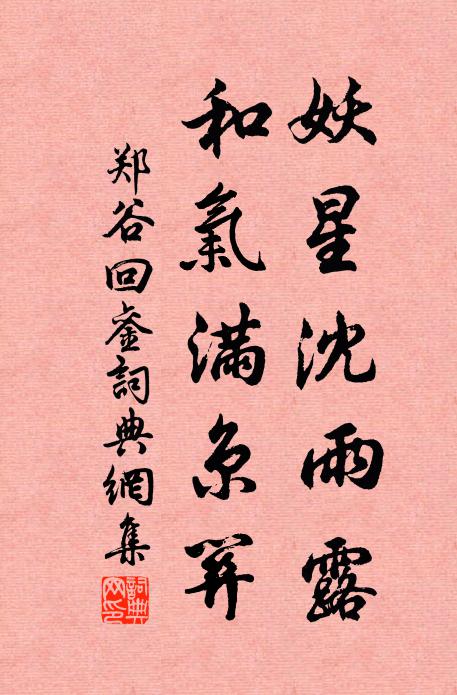 妖星沈雨露
和氣滿京關
郑谷回銮詞典網集
詞典網印